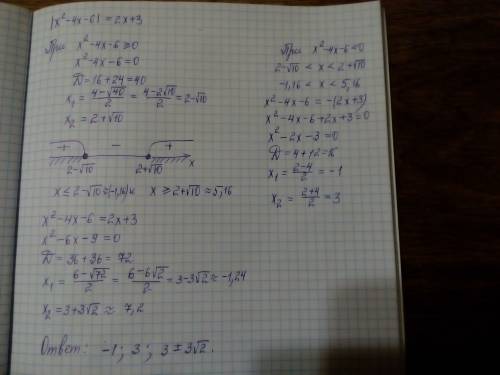 |x²-4x-6| = 2x+3
При x²-4x-6≥0
x²-4x-6=0
D=16+24=40
x₁ = (4-√40)/2 = (4-2√10)/2 = 2-√10
x₂ = 2+√10
+ − +
2-√10 2+√10 x
x ≤ 2-√10≈(-1,16) и x ≥ 2+√10 ≈ 5,16
x²-4x-6=2x+3
x²-6x-9=0
D= 36+36= 72
x₁ = (6-√72)/2 = (6-6√2)/2 = 3-3√2 ≈ -1,24
x₂ = 3+3√2 ≈ 7,2
Ответ: -1; 3; 3±3√2.
При x²-4x-6<0
2-√10 < x < 2+√10
-1,16 < x < 5,16
x²-4x-6 = -(2x+3)
x²-4x-6+2x+3=0
x²-2x-3=0
D=4+12=16
x₁ = (2-4)/2 = -1
x₂ = (2+4)/2 = 3